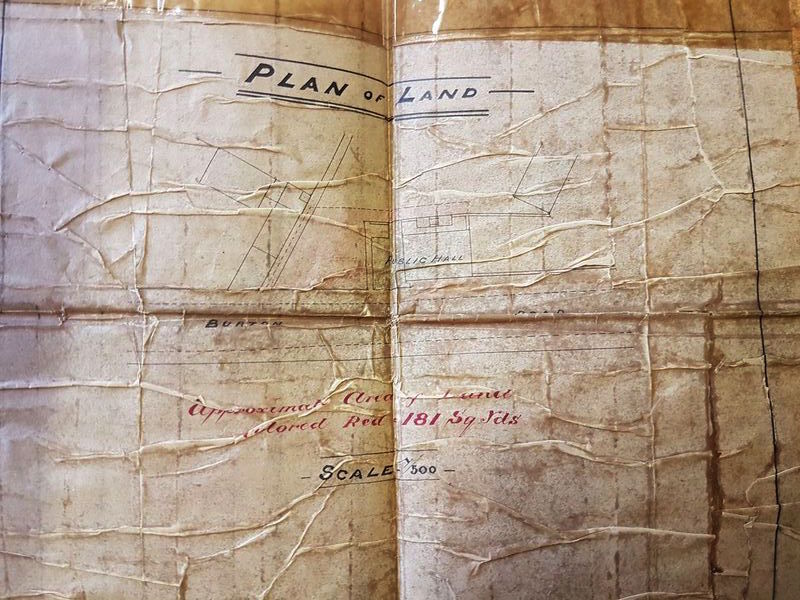 PLAN OF LAND
PUBLIC HALL
BURTON ROAD
Approximate Area of Land
Colored Red = 181 Sq Yds
SCALE 1/500